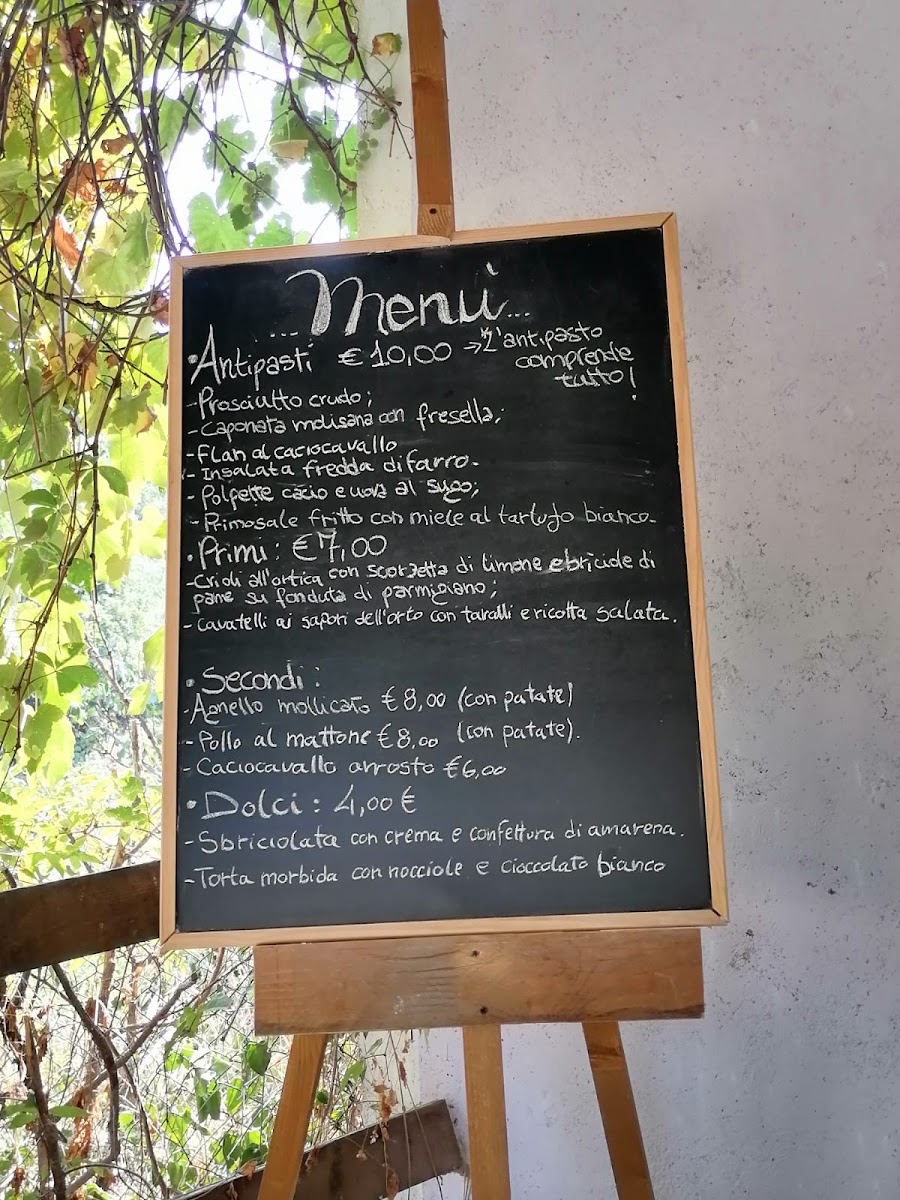 ...Menù...
• Antipasti €10,00 → L'antipasto
comprende
tutto!
- Prosciutto crudo;
- Caponata molisana con fresella;
- Flan al caciocavallo
- Insalata fredda di farro.
- Polpette cacio e uova al sugo;
- Primosale fritto con miele al tartufo bianco.
• Primi: €7,00
- Crioli all'ortica con scorzetta di limone e briciole di
pane su fonduta di parmigiano;
- Cavatelli ai sapori dell'orto con taralli e ricotta salata.
• Secondi:
- Agnello mollicato €8,00 (con patate)
- Pollo al mattone €8,00 (con patate).
- Caciocavallo arrosto €6,00
• Dolci: 4,00 €
- Sbriciolata con crema e confettura di amarena.
- Torta morbida con nocciole e cioccolato bianco